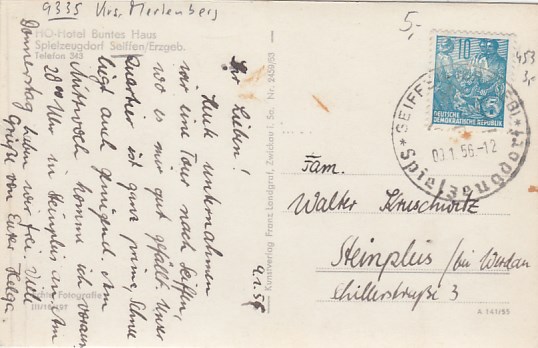 9335 Krs. Marienberg
5,-
453
3,-
HO-Hotel Buntes Haus
Spielzeugdorf Seiffen/Erzgeb.
Telefon 343
9.1.56
Ihr Lieben!
Heute unternahmen
wir eine Tour nach Seiffen,
wo es mir gut gefällt. Unser
Quartier ist ganz prima, Schnee
liegt auch genügend. Am
Mittwoch komme ich voraus.
20 00 Uhr in Steinpleis an. Am
Donnerstag haben wir frei. Viele
Grüße von Eurer Helga.
Echte Fotografie
Kunstverlag Franz Landgraf, Zwickau i. Sa. Nr. 2459/53
10
5
DEUTSCHE
DEMOKRATISCHE REPUBLIK
Spielzeugdorf
1.56-12
Fam.
Walter Kruschwitz
Steinpleis / bei Werdau
Schillerstraße 3
A 141/55